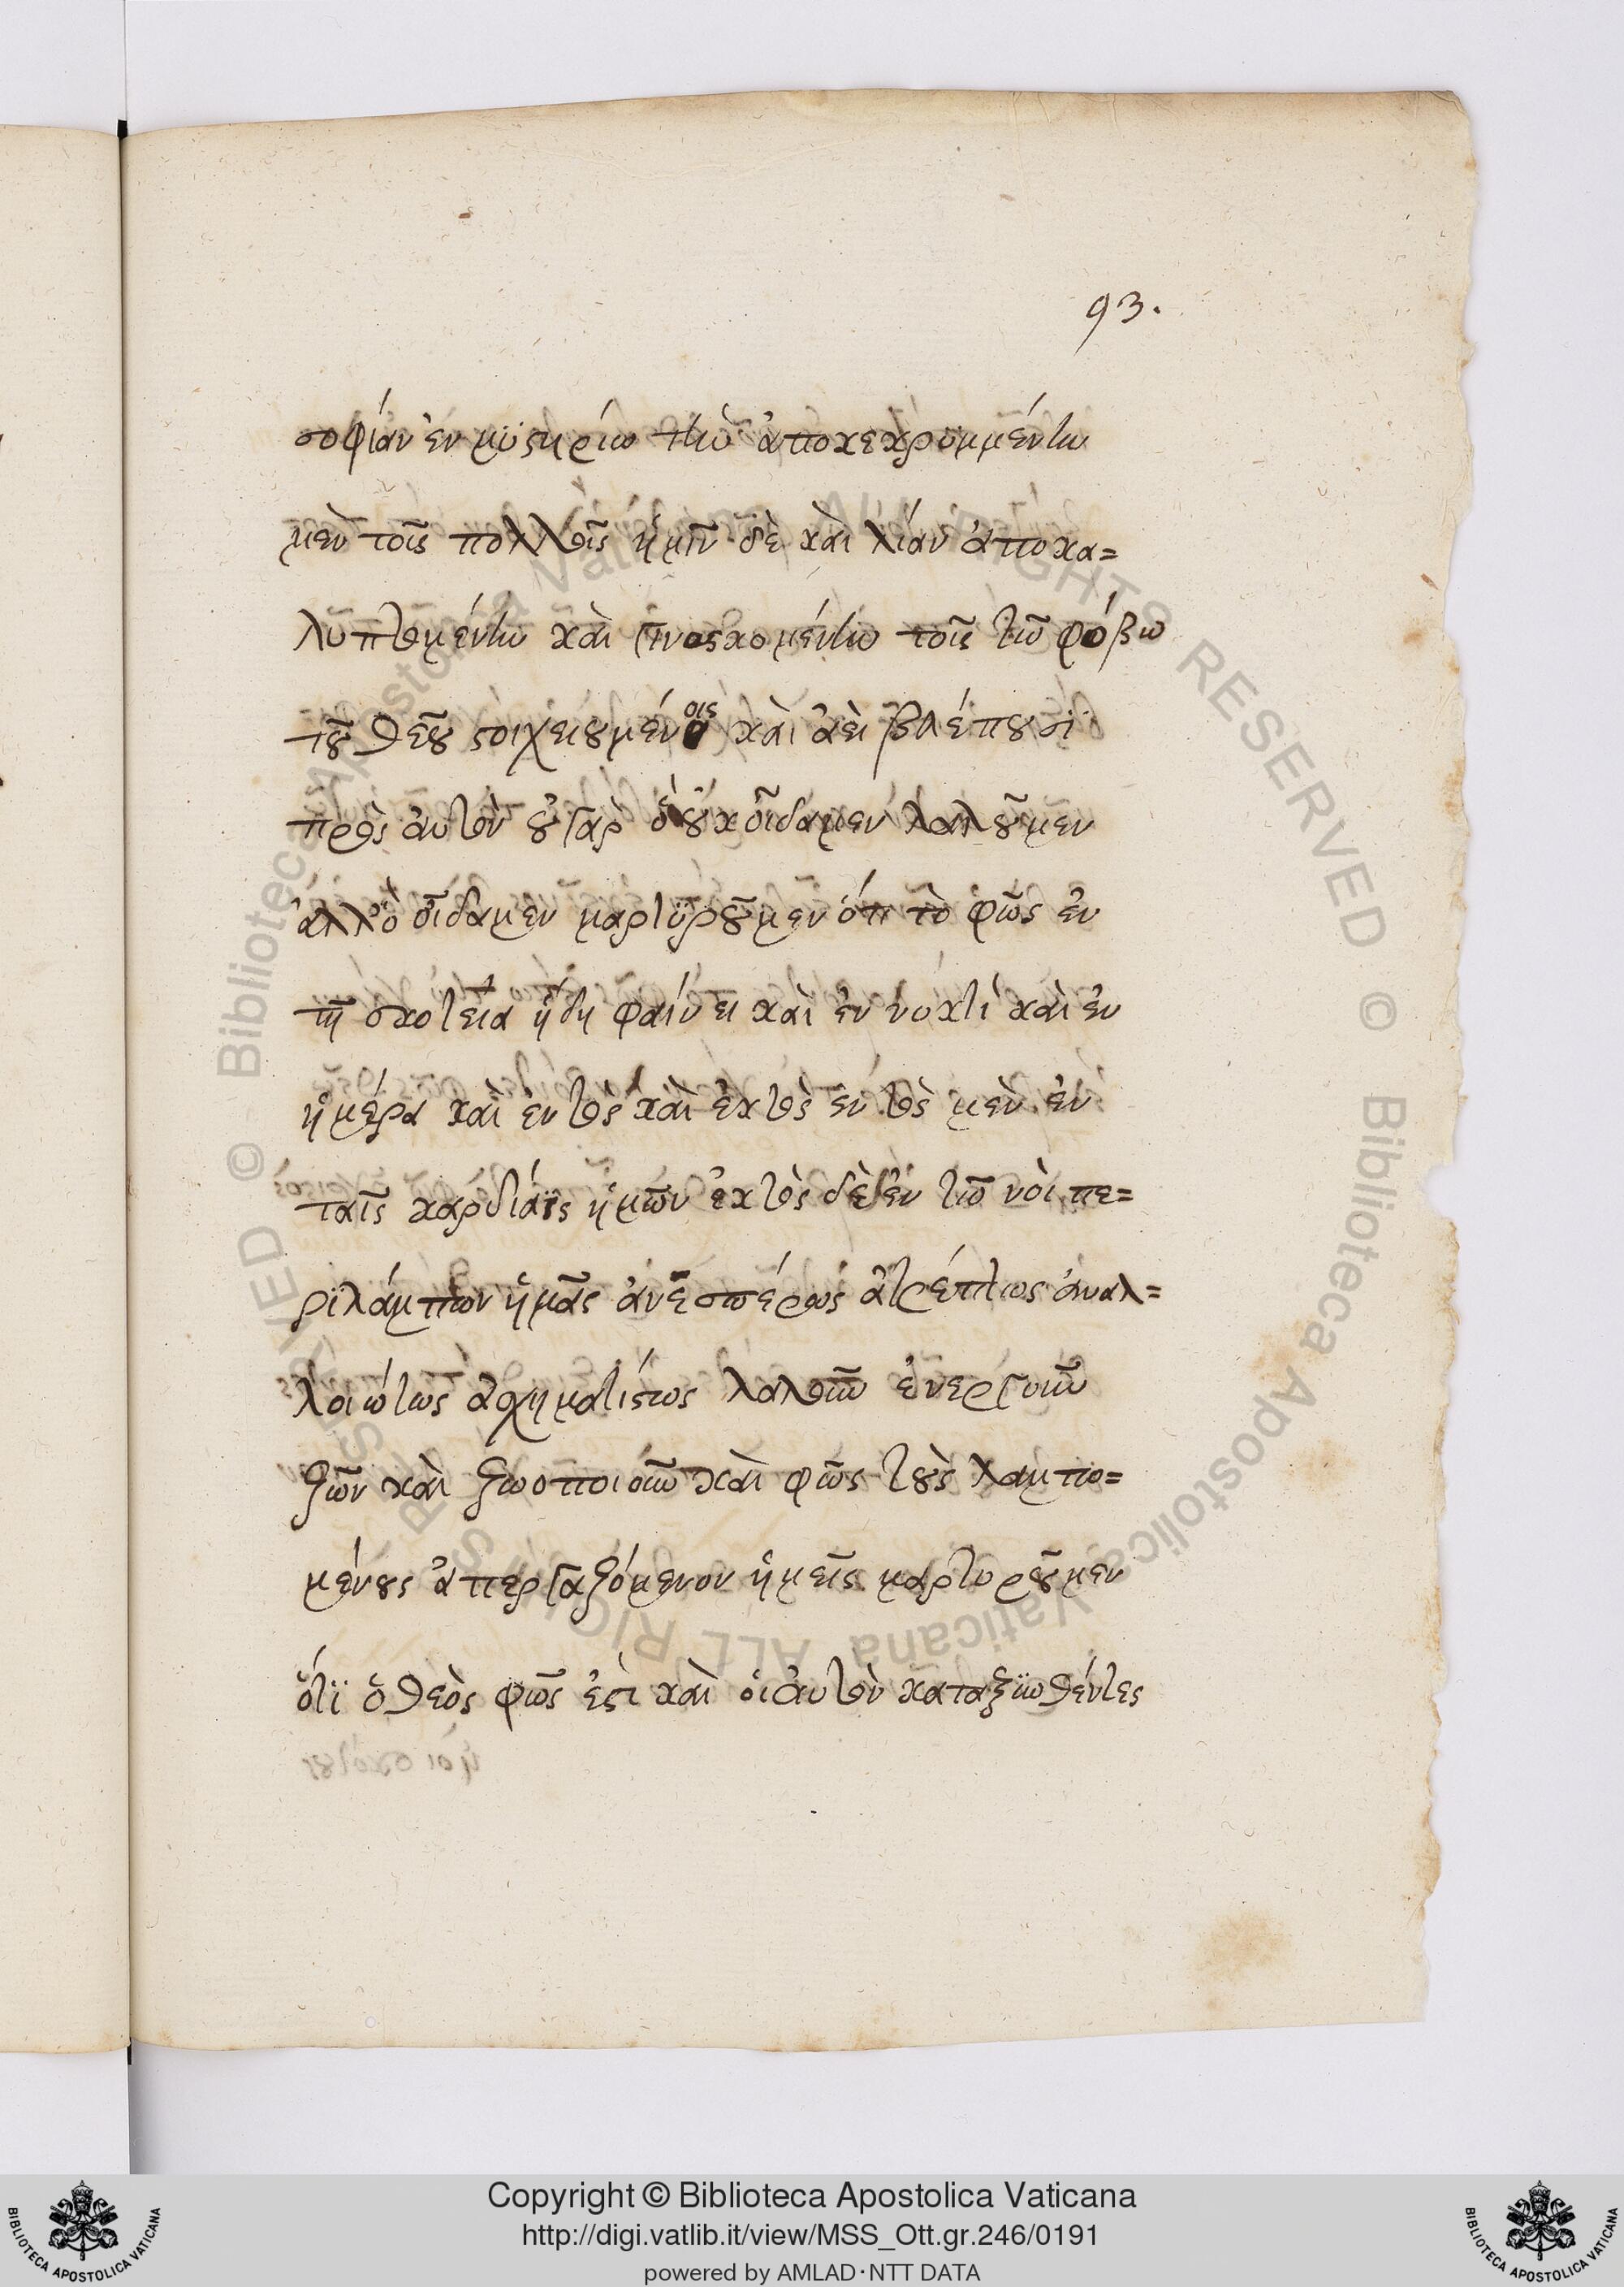 93.
σοφίαν ἐν μϋστηρίω τὴν ἀποκεκρυμμένην
μὲν τοῖς πολλοῖς ἡμῖν δὲ καὶ λίαν ἀποκα=
λϋπτομένην καὶ γινοσκομένην τοῖς τῶ φόβω
τοῦ θεοῦ στοιχειουμένοις καὶ ἀεὶ βλέπουσϊ
πρὸς ἀυτὸν οὐ γὰρ ὅ οὐκ οἴδαμεν λαλοῦμεν
ἀλλ' ὃ οἴδαμεν μαρτϋροῦμεν ὅτι τὸ φῶς ἐν
τῆ σκοτεία ἤδη φαίνει καὶ ἐν νυκτὶ καὶ ἐν
ἡμέρα καὶ ἐντὸς καὶ ἐκτὸς ἐντὸς μὲν ἐν
ταῖς καρδίαις ἡμῶν ἐκτὸς δὲ ἐν τῶ νοῒ πε=
ρϊλάμπων ἡμᾶς ἀνεσπέρως ἀτρέπτως ἀναλ=
λοιώτως ἀσχηματίστως λαλοῦν ἐνεργοῦν
ζῶν καὶ ζωοποιοῦν καὶ φῶς τοὺς λαμπο=
μένους ἀπεργαζόμενον ἡμεῖς μαρτυροῦμεν
ὅτϊ ὁ θεὸς φῶς ἐστι καὶ οἱ ἀυτὸν καταξϊωθέντες
Copyright © Biblioteca Apostolica Vaticana
http://digi.vatlib.it/view/MSS_Ott.gr.246/0191
powered by AMLAD·NTT DATA